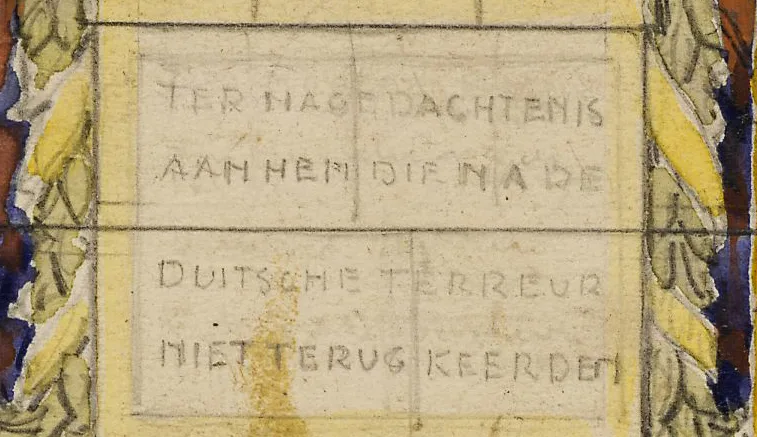 TER NAGEDACHTENIS
AAN HEN DIE NA DE
DUITSCHE TERREUR
NIET TERUG KEERDEN